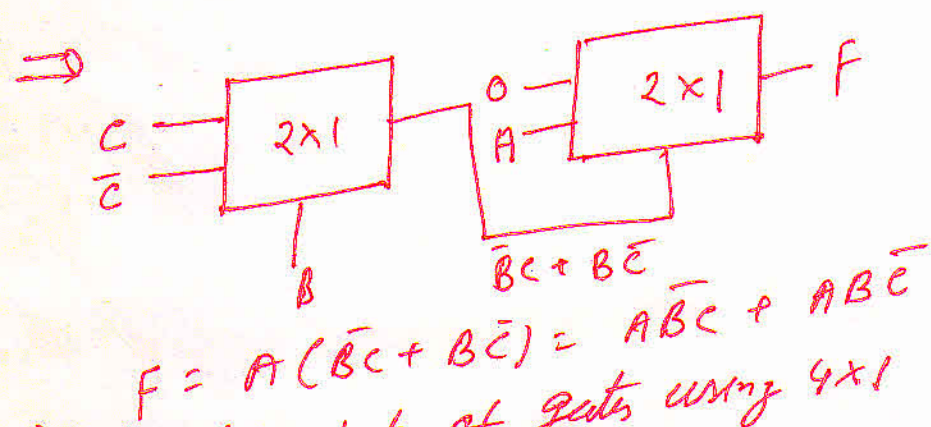 ⇒
C
C̅
2×1
B
0
A
2×1
F
B̅C + BC̅
F = A(B̅C + BC̅) = AB̅C + ABC̅
of gates using 4×1